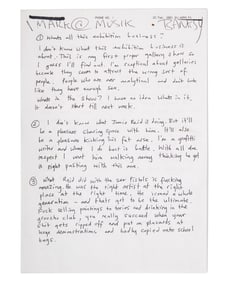 MARK @ MUSIK
① Whats all this exhibition business?
I don't know what this exhibition business is
about. This is my first proper gallery show so
I guess I'll find out. I'm sceptical about galleries
because they seem to attract the wrong sort of
people. People who are over analytical and don't look
like they have enough sex.
Whats in the show? I have no idea whats in it.
It doesn't start till next week.
② I don't know what Jamie Reid is doing. But it'll
be a pleasure sharing space with him. It'll also
be a pleasure kicking his fat arse. I'm a graffiti
writer and what I do best is battle. With all due
respect I want him walking away thinking to get
a right pasting with this one.
③ What Reid did with the sex pistols is fucking
amazing. He was the right artist at the right
place at the right time. He iconed a whole
generation - and thats got to be the ultimate.
Fuck selling paintings to tories and drinking in the
groucho club, you really succeed when your
shit gets ripped off and put on placards at
huge demonstrations and badly copied onto school
bags.